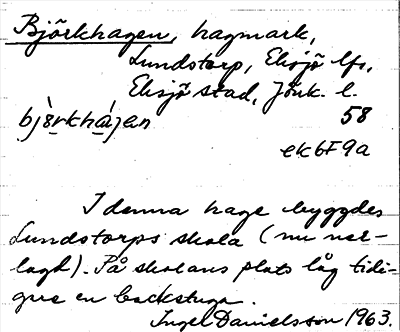 Björkhagen, hagmark,
Lundstorp, Eksjö lfs,
Eksjö stad, Jönk. l.
bjö̀rkhájen 58
ek 6F9a
I denna hage byggdes
Lundstorps skola (nu ned-
lagd). På skolans plats låg tidi-
gare en backstuga.
Inger Danielsson 1963.